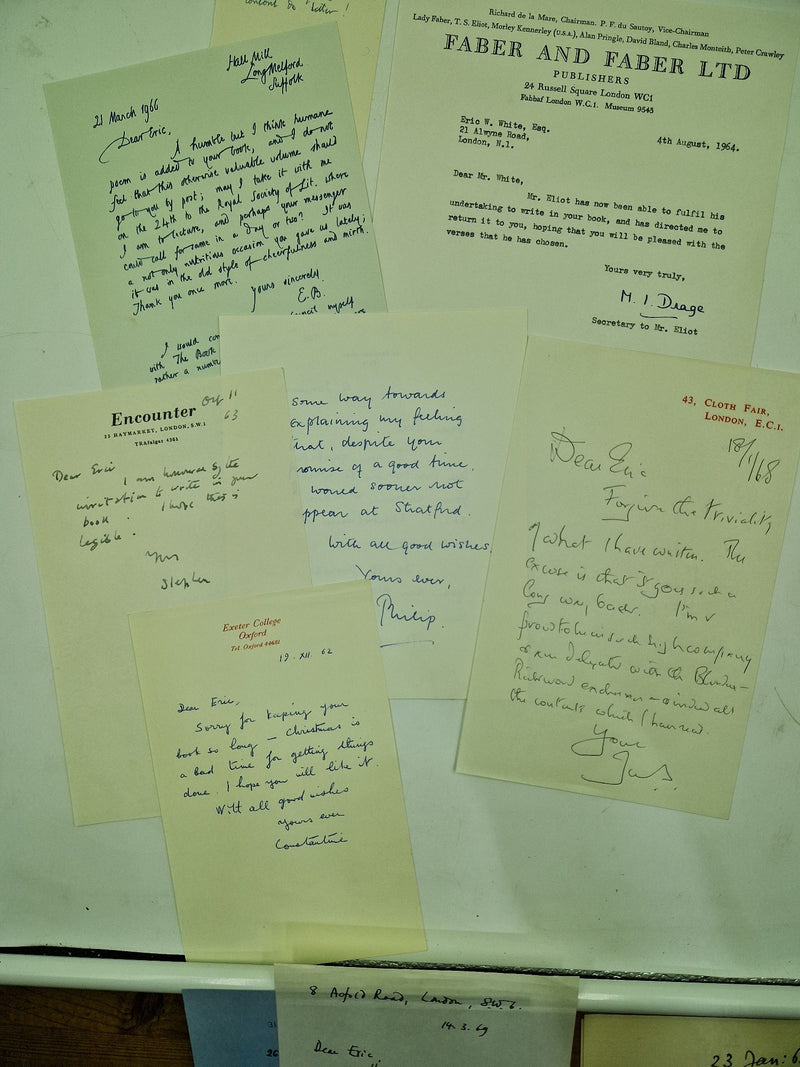 concert so better!
Hall Mill
Long Melford
Suffolk
21 March 1966
Dear Eric,
A humble but I think humane
poem is added to your book, and I do not
feel that this otherwise valuable volume should
go to you by post; may I take it with me
on the 24th to the Royal Society of Lit. where
I am to lecture, and perhaps your messenger
could call for same in a day or two? It was
a not only nutritious occasion you gave us lately;
it was in the old style of cheerfulness and mirth.
Thank you once more.
Yours sincerely
E.B.
myself
I would
with The Book
rather a
Richard de la Mare, Chairman. P. F. du Sautoy, Vice-Chairman
Lady Faber, T. S. Eliot, Morley Kennerley (U.S.A.), Alan Pringle, David Bland, Charles Monteith, Peter Crawley
FABER AND FABER LTD
PUBLISHERS
24 Russell Square London WC1
Fabbaf London W.C.1. Museum 9543
Eric W. White, Esq.
21 Alwyne Road,
London, N.1.
4th August, 1964.
Dear Mr. White,
Mr. Eliot has now been able to fulfil his
undertaking to write in your book, and has directed me to
return it to you, hoping that you will be pleased with the
verses that he has chosen.
Yours very truly,
M. I. Drage
Secretary to Mr. Eliot
Encounter
25 HAYMARKET, LONDON, S.W.1
TRAfalgar 4361
Oct 11
63
Dear Eric
I am honoured by the
invitation to write in your
book. I hope this is
legible.
Yrs
Stephen
some way towards
explaining my feeling
that, despite your
promise of a good time,
would sooner not
ppear at Stratford.
With all good wishes,
Yours ever,
Philip.
43, CLOTH FAIR,
LONDON, E.C.1.
18/1/68
Dear Eric
Forgive the triviality
of what I have written. The
excuse is that it goes such a
long way back. I'm v
proud to be in such high company
the contents which I have read.
Yours
Exeter College
Oxford
Tel. Oxford
19. XII. 62
Dear Eric,
Sorry for keeping your
book so long – Christmas is
a bad time for getting things
done. I hope you will like it.
With all good wishes
yours ever
Constantine
31
26
8 Acfold Road, London, S.W.6.
14.3.69
Dear Eric,
23 Jan: 6